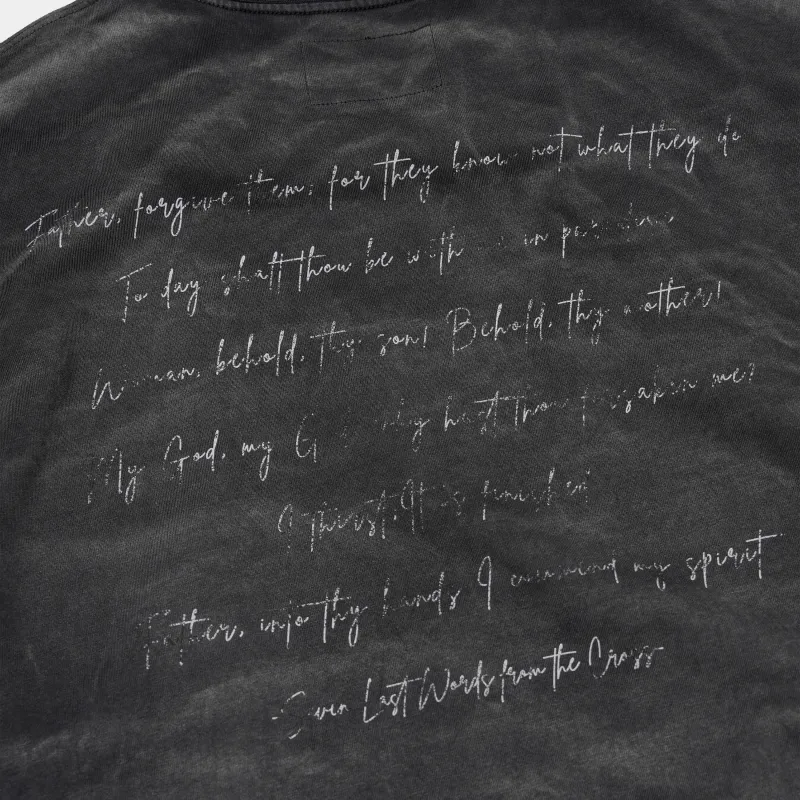 Father, forgive them, for they know not what they do
To day shalt thou be with me in paradise
Woman, behold, thy son! Behold, thy mother!
My God, my God, why hast thou forsaken me?
I thirst, It is finished
Father, into thy hands I commend my spirit
-Seven Last Words from the Cross